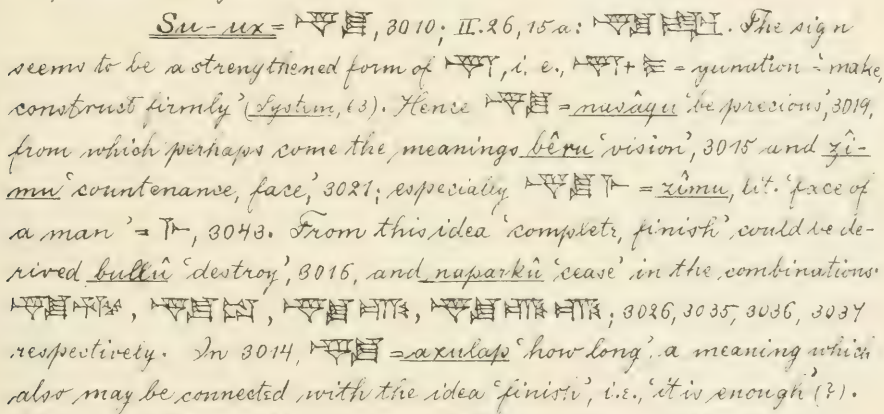 Su-ux = , 3010; II. 26, 15 a: . The sign
seems to be a strengthened form of , i. e., + = gunation = 'make,
construct firmly' (System, 63). Hence = nasâqu 'be precious', 3019,
from which perhaps come the meanings bêru 'vision', 3015 and zî-
mu 'countenance, face', 3021; especially = zîmu, lit. 'face of
a man' = , 3043. From this idea 'complete, finish' could be de-
rived bullû 'destroy', 3016, and naparkû 'cease' in the combinations:
, , , ; 3026, 3035, 3036, 3037
respectively. In 3014, = axulap 'how long', a meaning which
also may be connected with the idea 'finish', i.e., 'it is enough' (?).